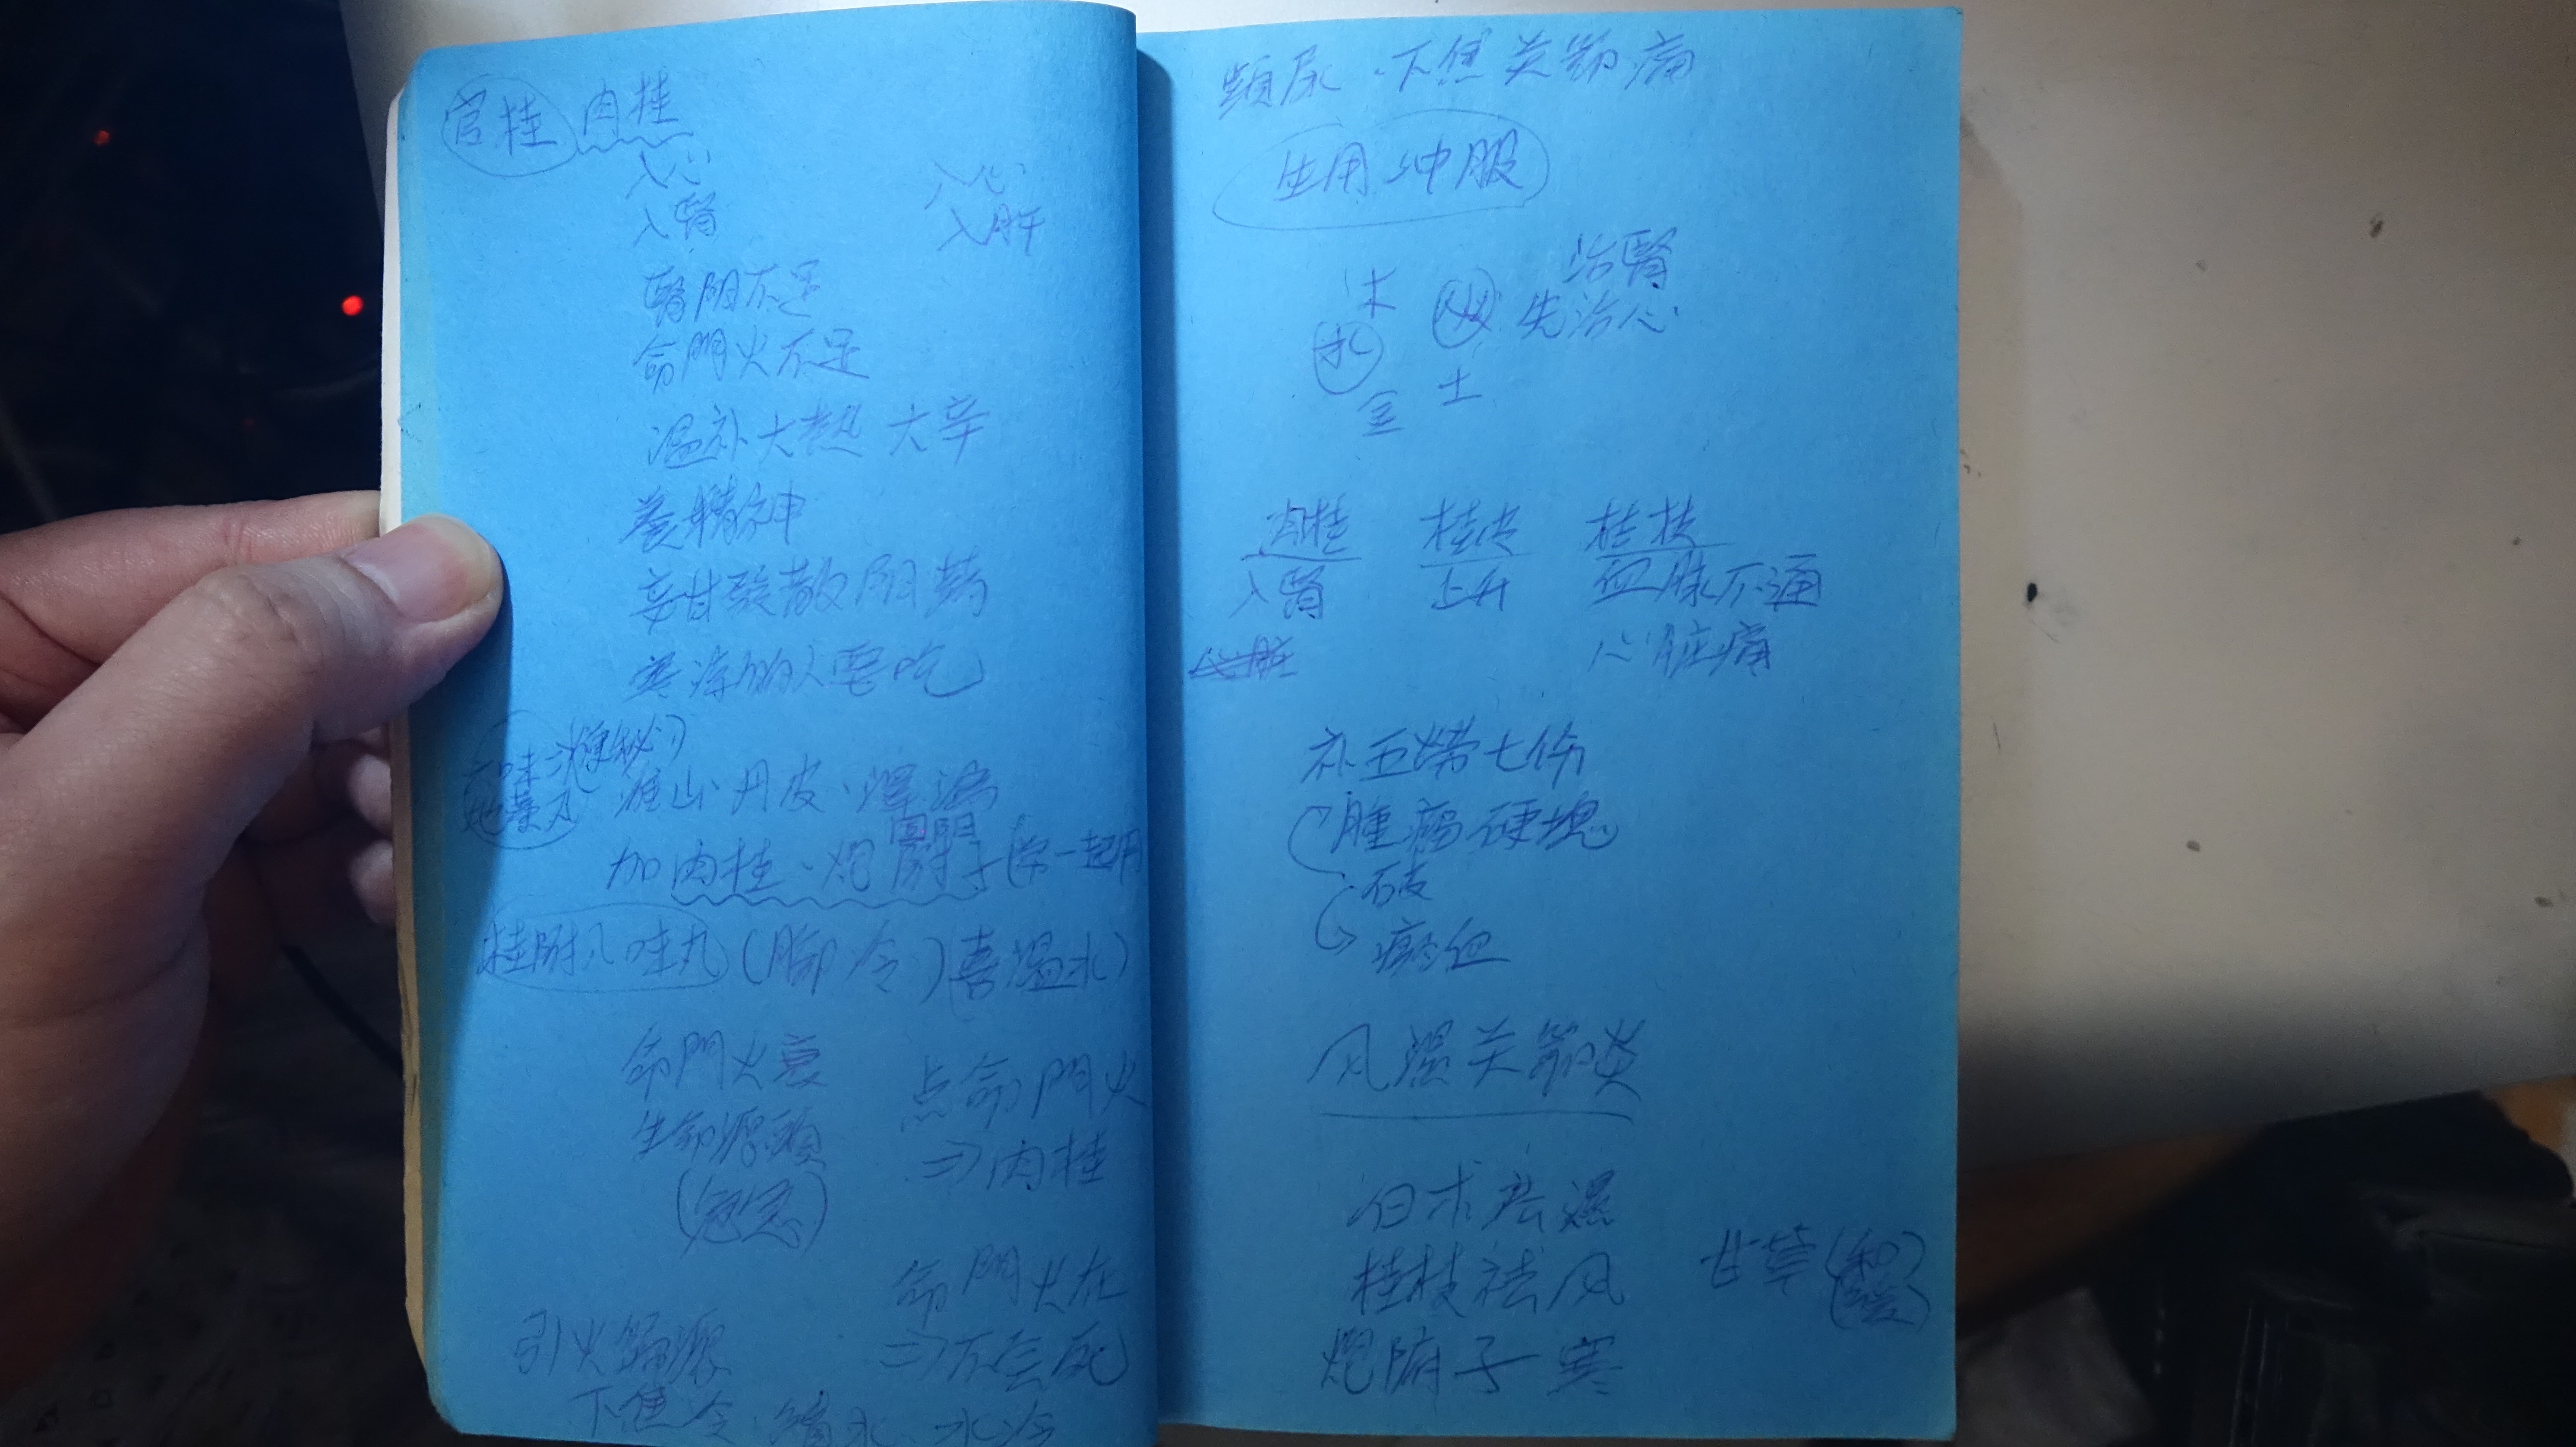 官桂 肉桂
入心 入心
入腎 入肝
腎阴不足
命門火不足
温补大热 大辛
养精神
辛甘發散阳药
寒凉的人要吃
六味地黄丸 (便秘)
淮山 丹皮
加肉桂·炮附子 一起用
桂附八味丸 (脚冷) (喜温水)
命門火衰 点命門火
生命源頭 ⇒肉桂
命門火在
引火歸源 ⇒不会死
下焦冷 水冷
頻尿·下焦关節痛
生用 冲服
木 火 治腎
水 先治心
金 土
肉桂 桂皮 桂枝
入腎 上升 血脉不通
心脏痛
补五劳七伤
腫瘤硬塊
破
瘀血
风濕关節炎
白术祛濕
桂枝祛风 甘草(和緩)
炮附子 寒